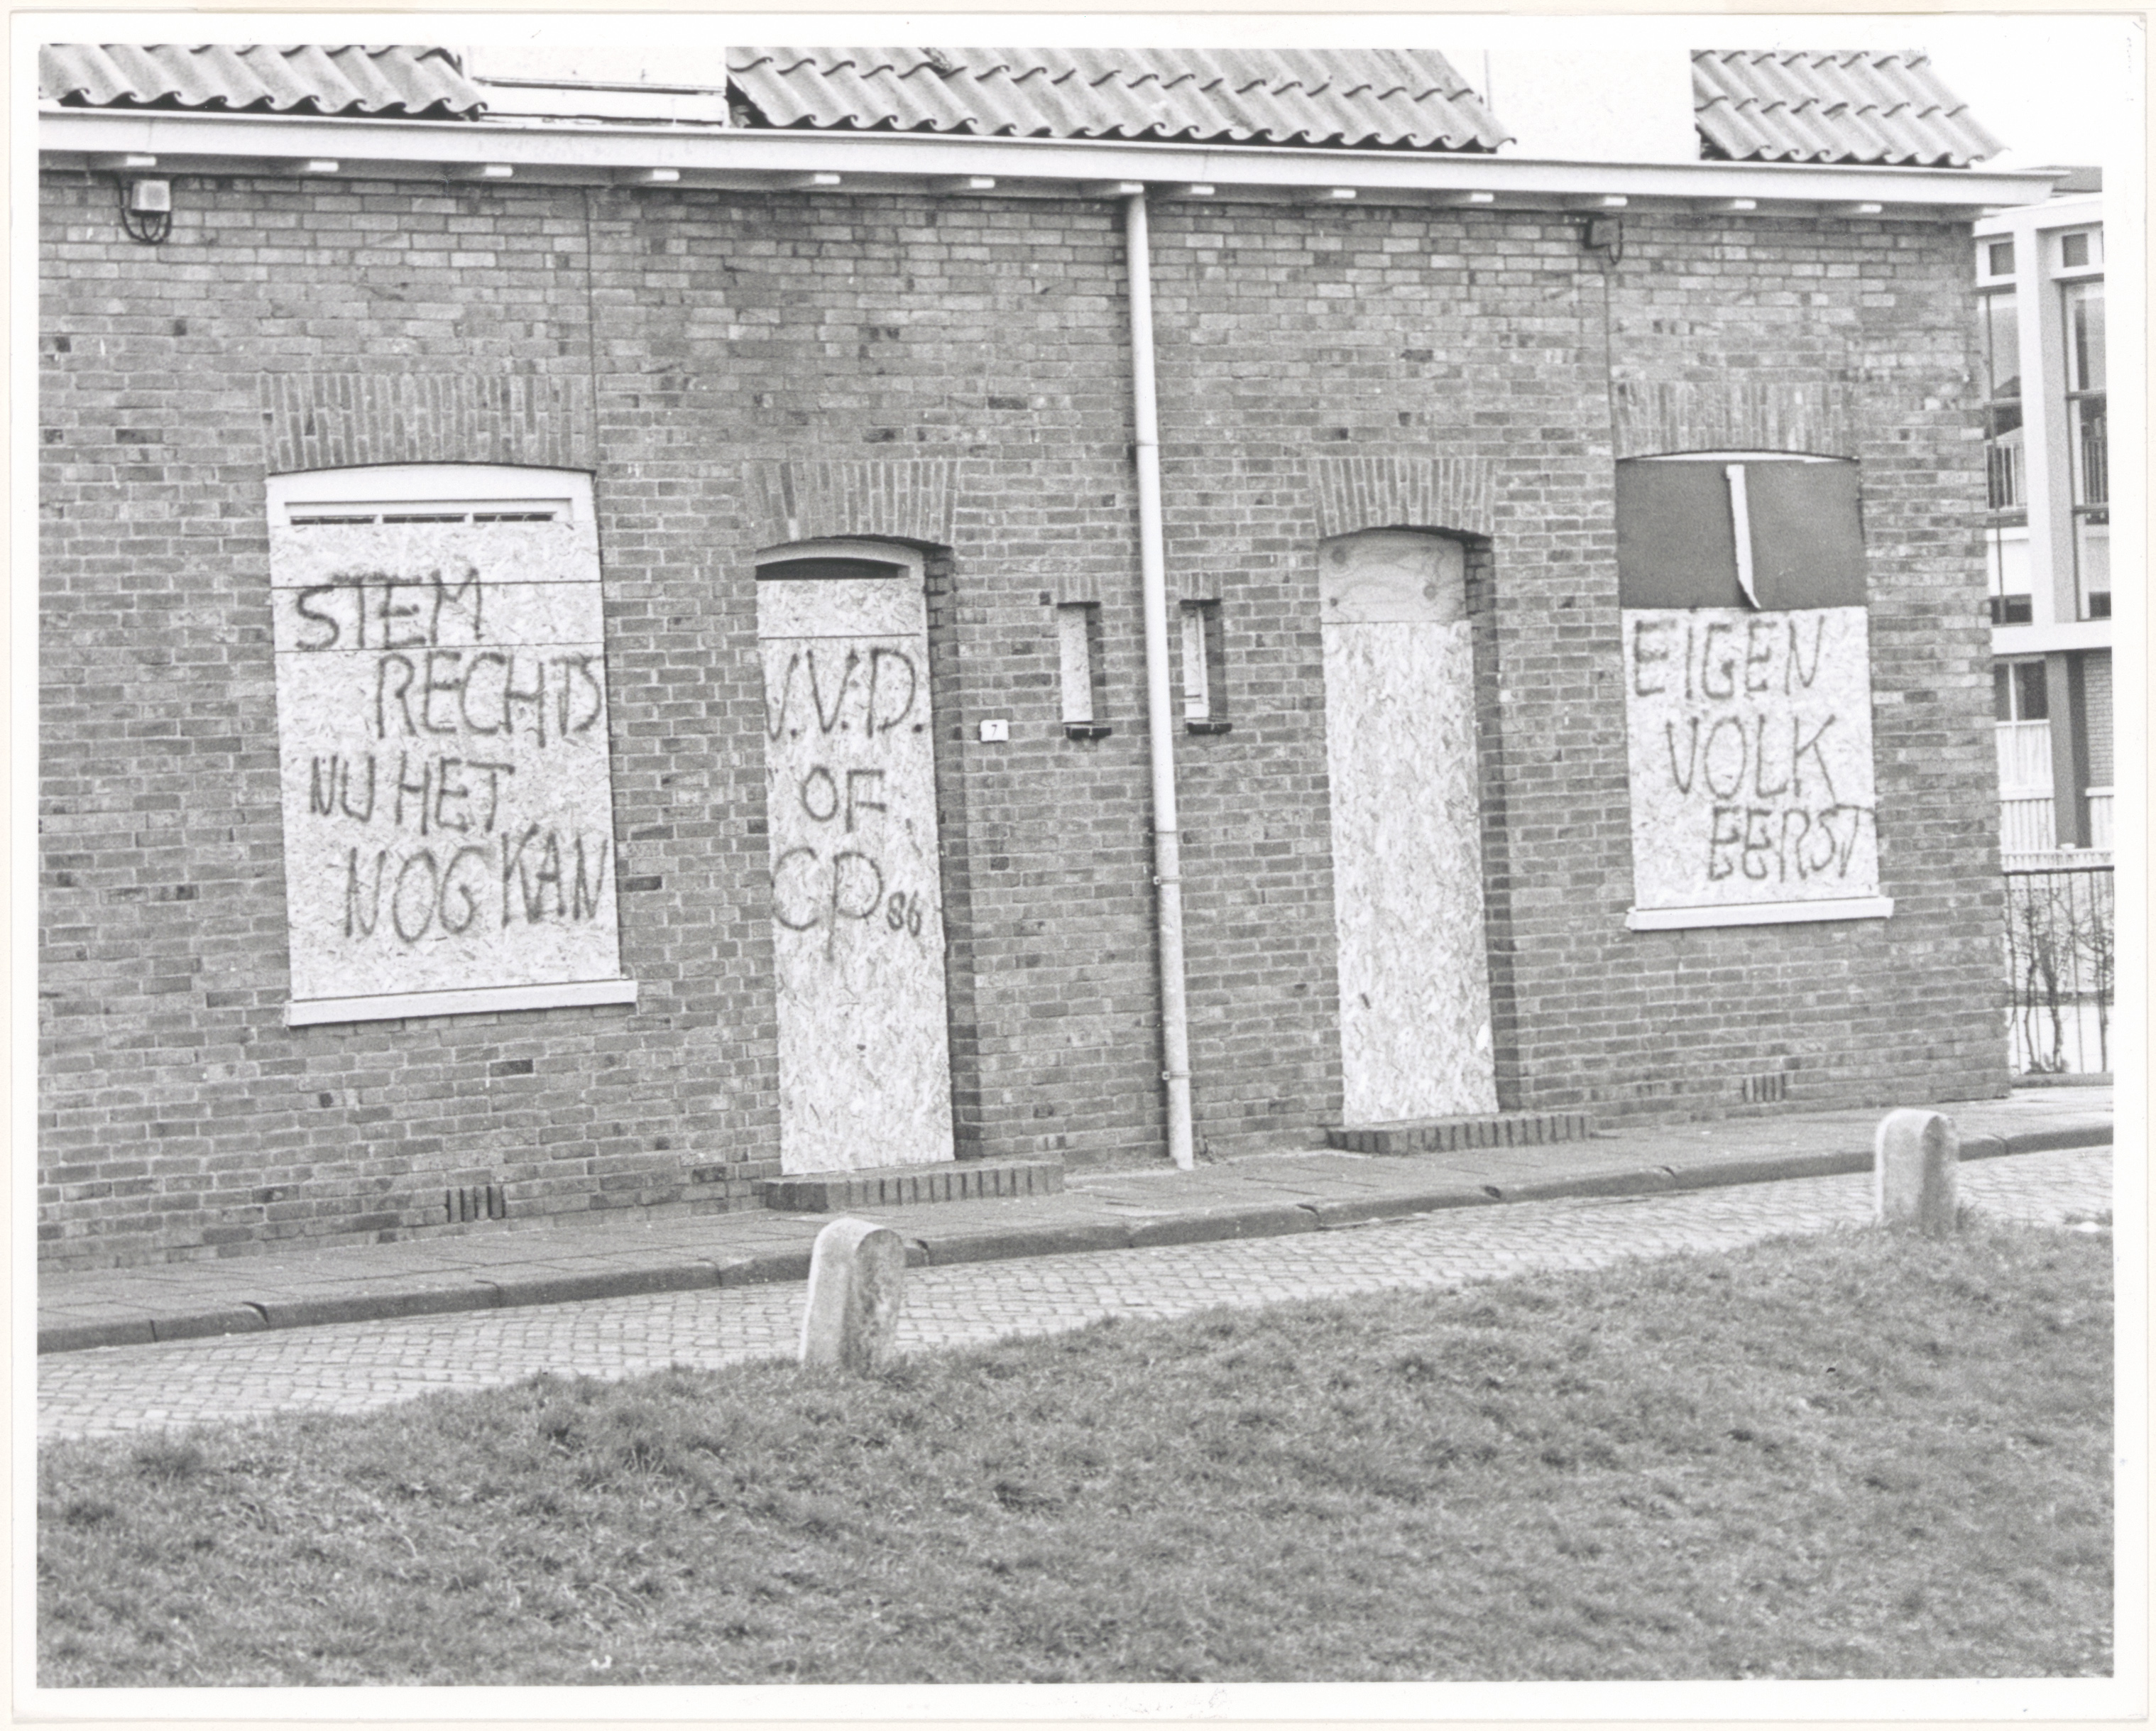 STEM
RECHTS
NU HET
NOG KAN
V.V.D.
OF
CP86
7
EIGEN
VOLK
EERST